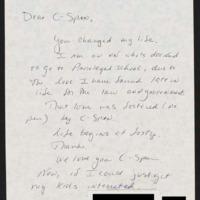 Dear C-Span,
You changed my life.
I am an ex who's decided
to go to Paralegal School, due to
the love I have found late in
life for the law and government.
That love was fostered (no
pun) by C-Span.
Life begins at forty.
Thanks.
We love you C-Span.
Now, if I could just get
my kids interested